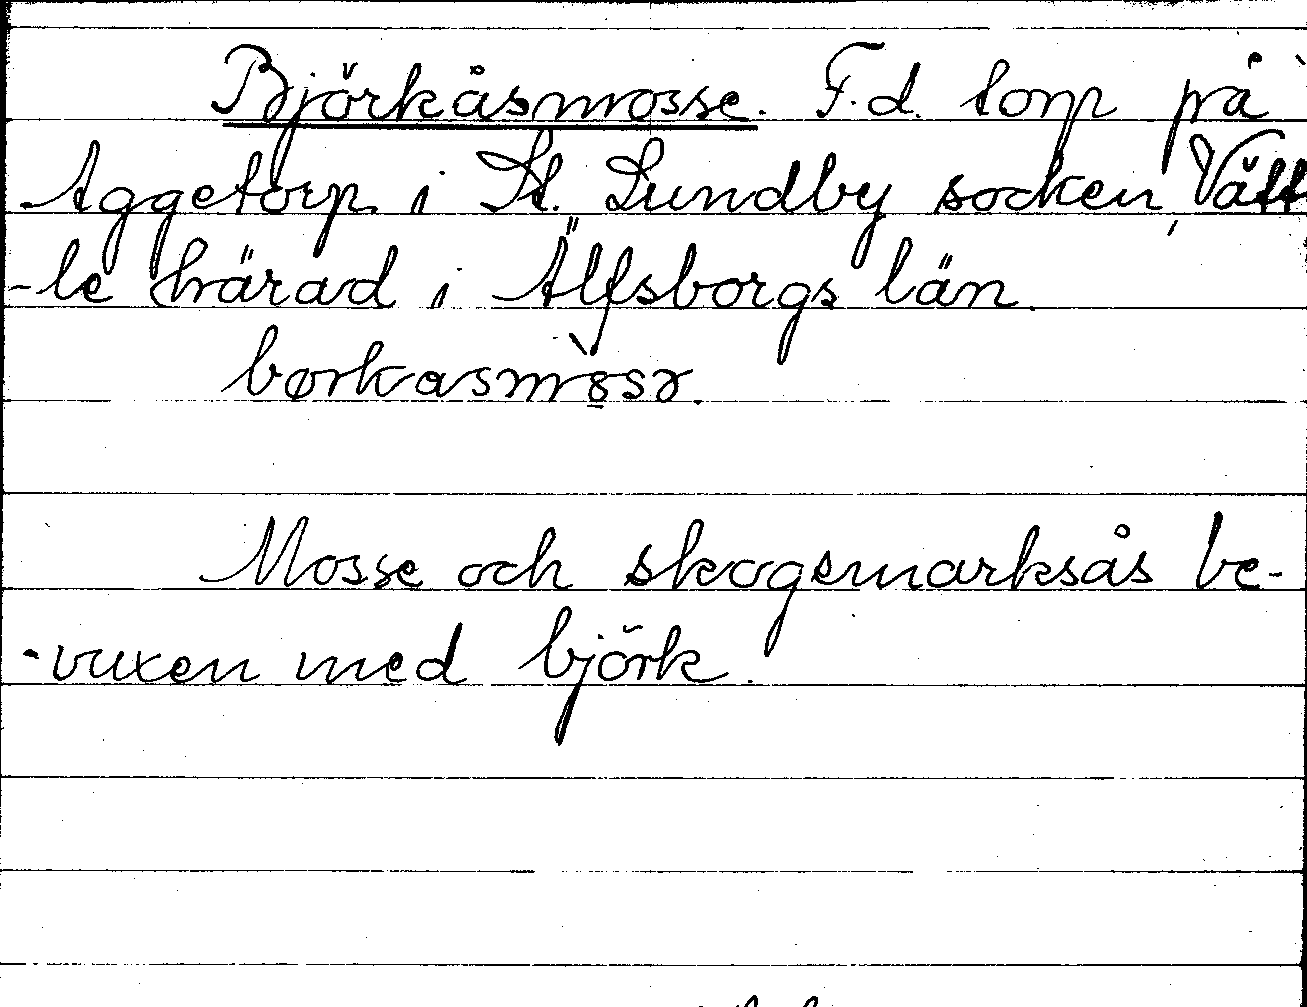 Björkåsmosse. F.d. torp på
Aggetorp i St. Lundby socken, Vätt
-le härad i Älfsborgs län.
børkasmòsə.
Mosse och skogsmarksås be-
-vuxen med björk.